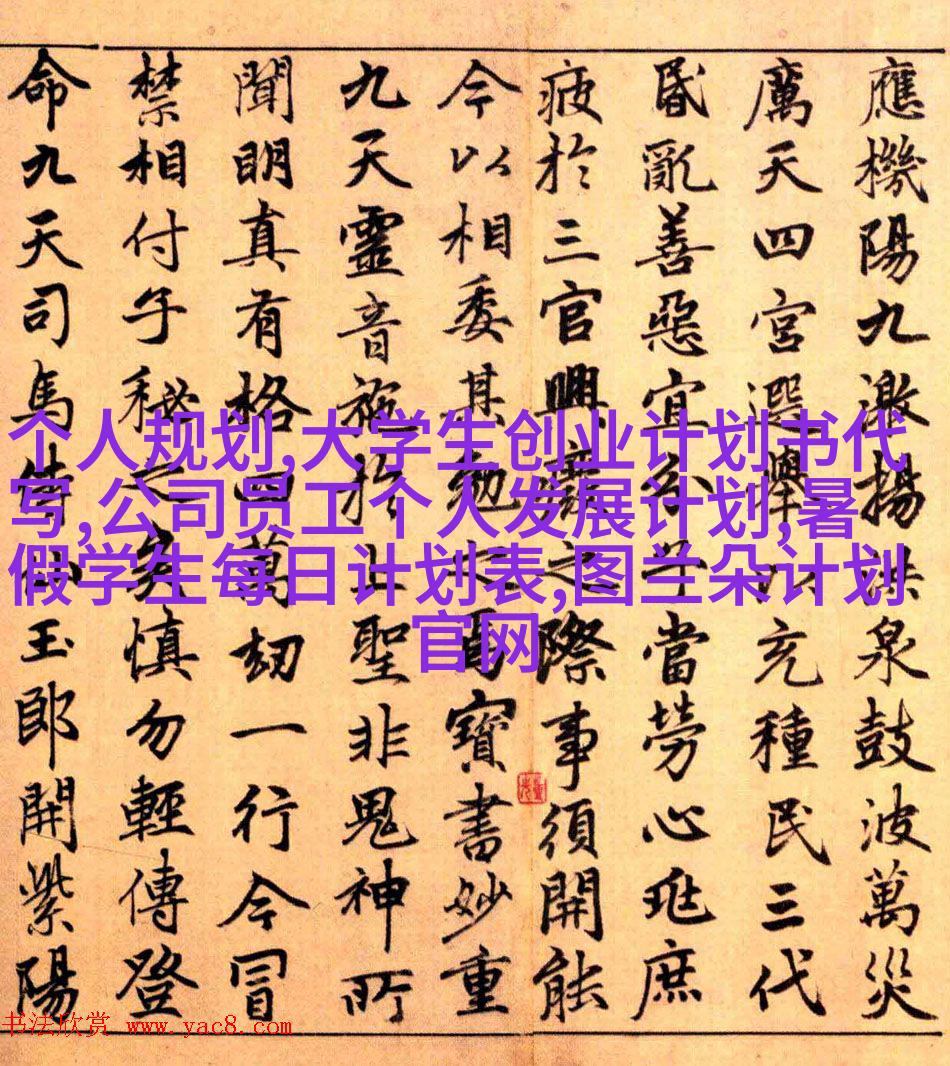 應機陽九激揚洪泉鼓波萬災
厲天四宮選舉以充種民三代
昏亂善惡宜分當勞心兆庶
疲於三官興廢之際事須開能
今以相委其勉焉寶書妙重
九天靈音施於上聖非鬼神所
聞明真有格四萬劫一行今冒
禁相付子秘之矣慎勿輕傳登
命九天司馬侍仙玉郎開紫陽
个人规划,大学生创业计划书代
写,公司员工个人发展计划,暑
假学生每日计划表,图兰朵计划
官网
书法欣赏 www.yac8.com